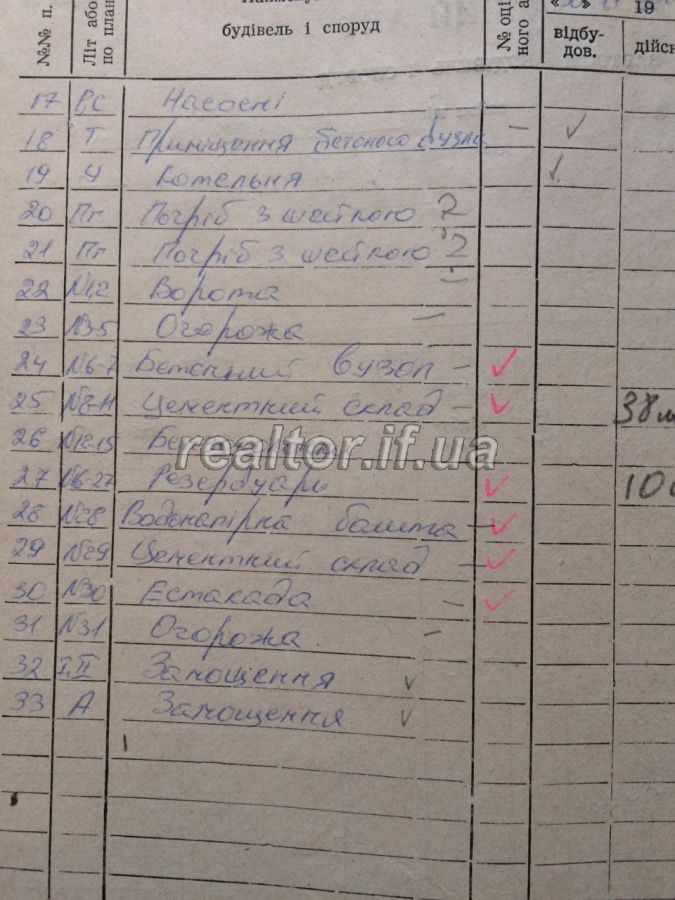 №№ п.
Літ або
по план
будівель і споруд
№ оці
ного а
19
відбу-
дов.
дійсн
17 В,С Насосні
18 Т Приміщення бетоного вузла –
19 Ч Котельня
20 Пг Погріб з шейкою 2
21 Пг Погріб з шейкою 2
22 №1,2 Ворота –
23 №3-5 Огорожа –
24 №6-7 Бетонний вузол –
25 №8-11 Цементний склад – 38
26 №12-15
27 №16-27 Резервуарь 10
28 №28 Водонапірна башта –
29 №29 Цементний склад –
30 №30 Естакада –
31 №31 Огорожа –
32 I,II Замощення
33 А Замощення
realtor.if.ua